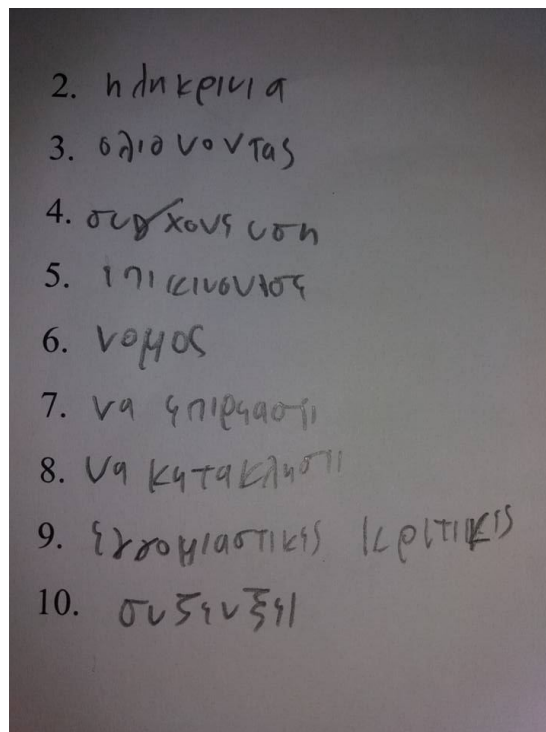 2. ηληκρινια
3. ολισνοντας
4. συγχουςυση
5. επικινουνος
6. νομος
7. να επιρεαστι
8. να κατακληστι
9. εγγομιαστικες κριτικες
10. συζευξει